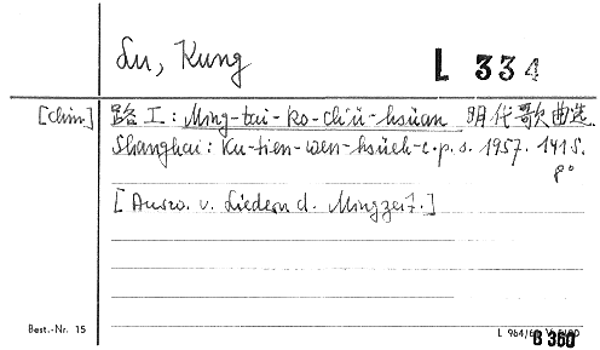 Lu, Kung
L 334
[Chin] 路工: Ming-tai-ko-ch'ü-hsüan 明代歌曲选.
Shanghai: Ku-tien-wen-hsüeh-c.p.s. 1957. 141 S.
8°
[Ausw. v. Liedern d. Mingzeit.]
Best.-Nr. 15
B 360